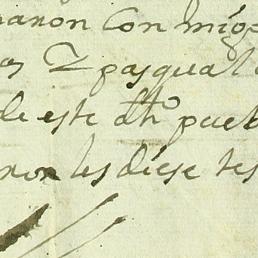 maron con migo
y pasqual
de este dho pueb
ron les diese tes